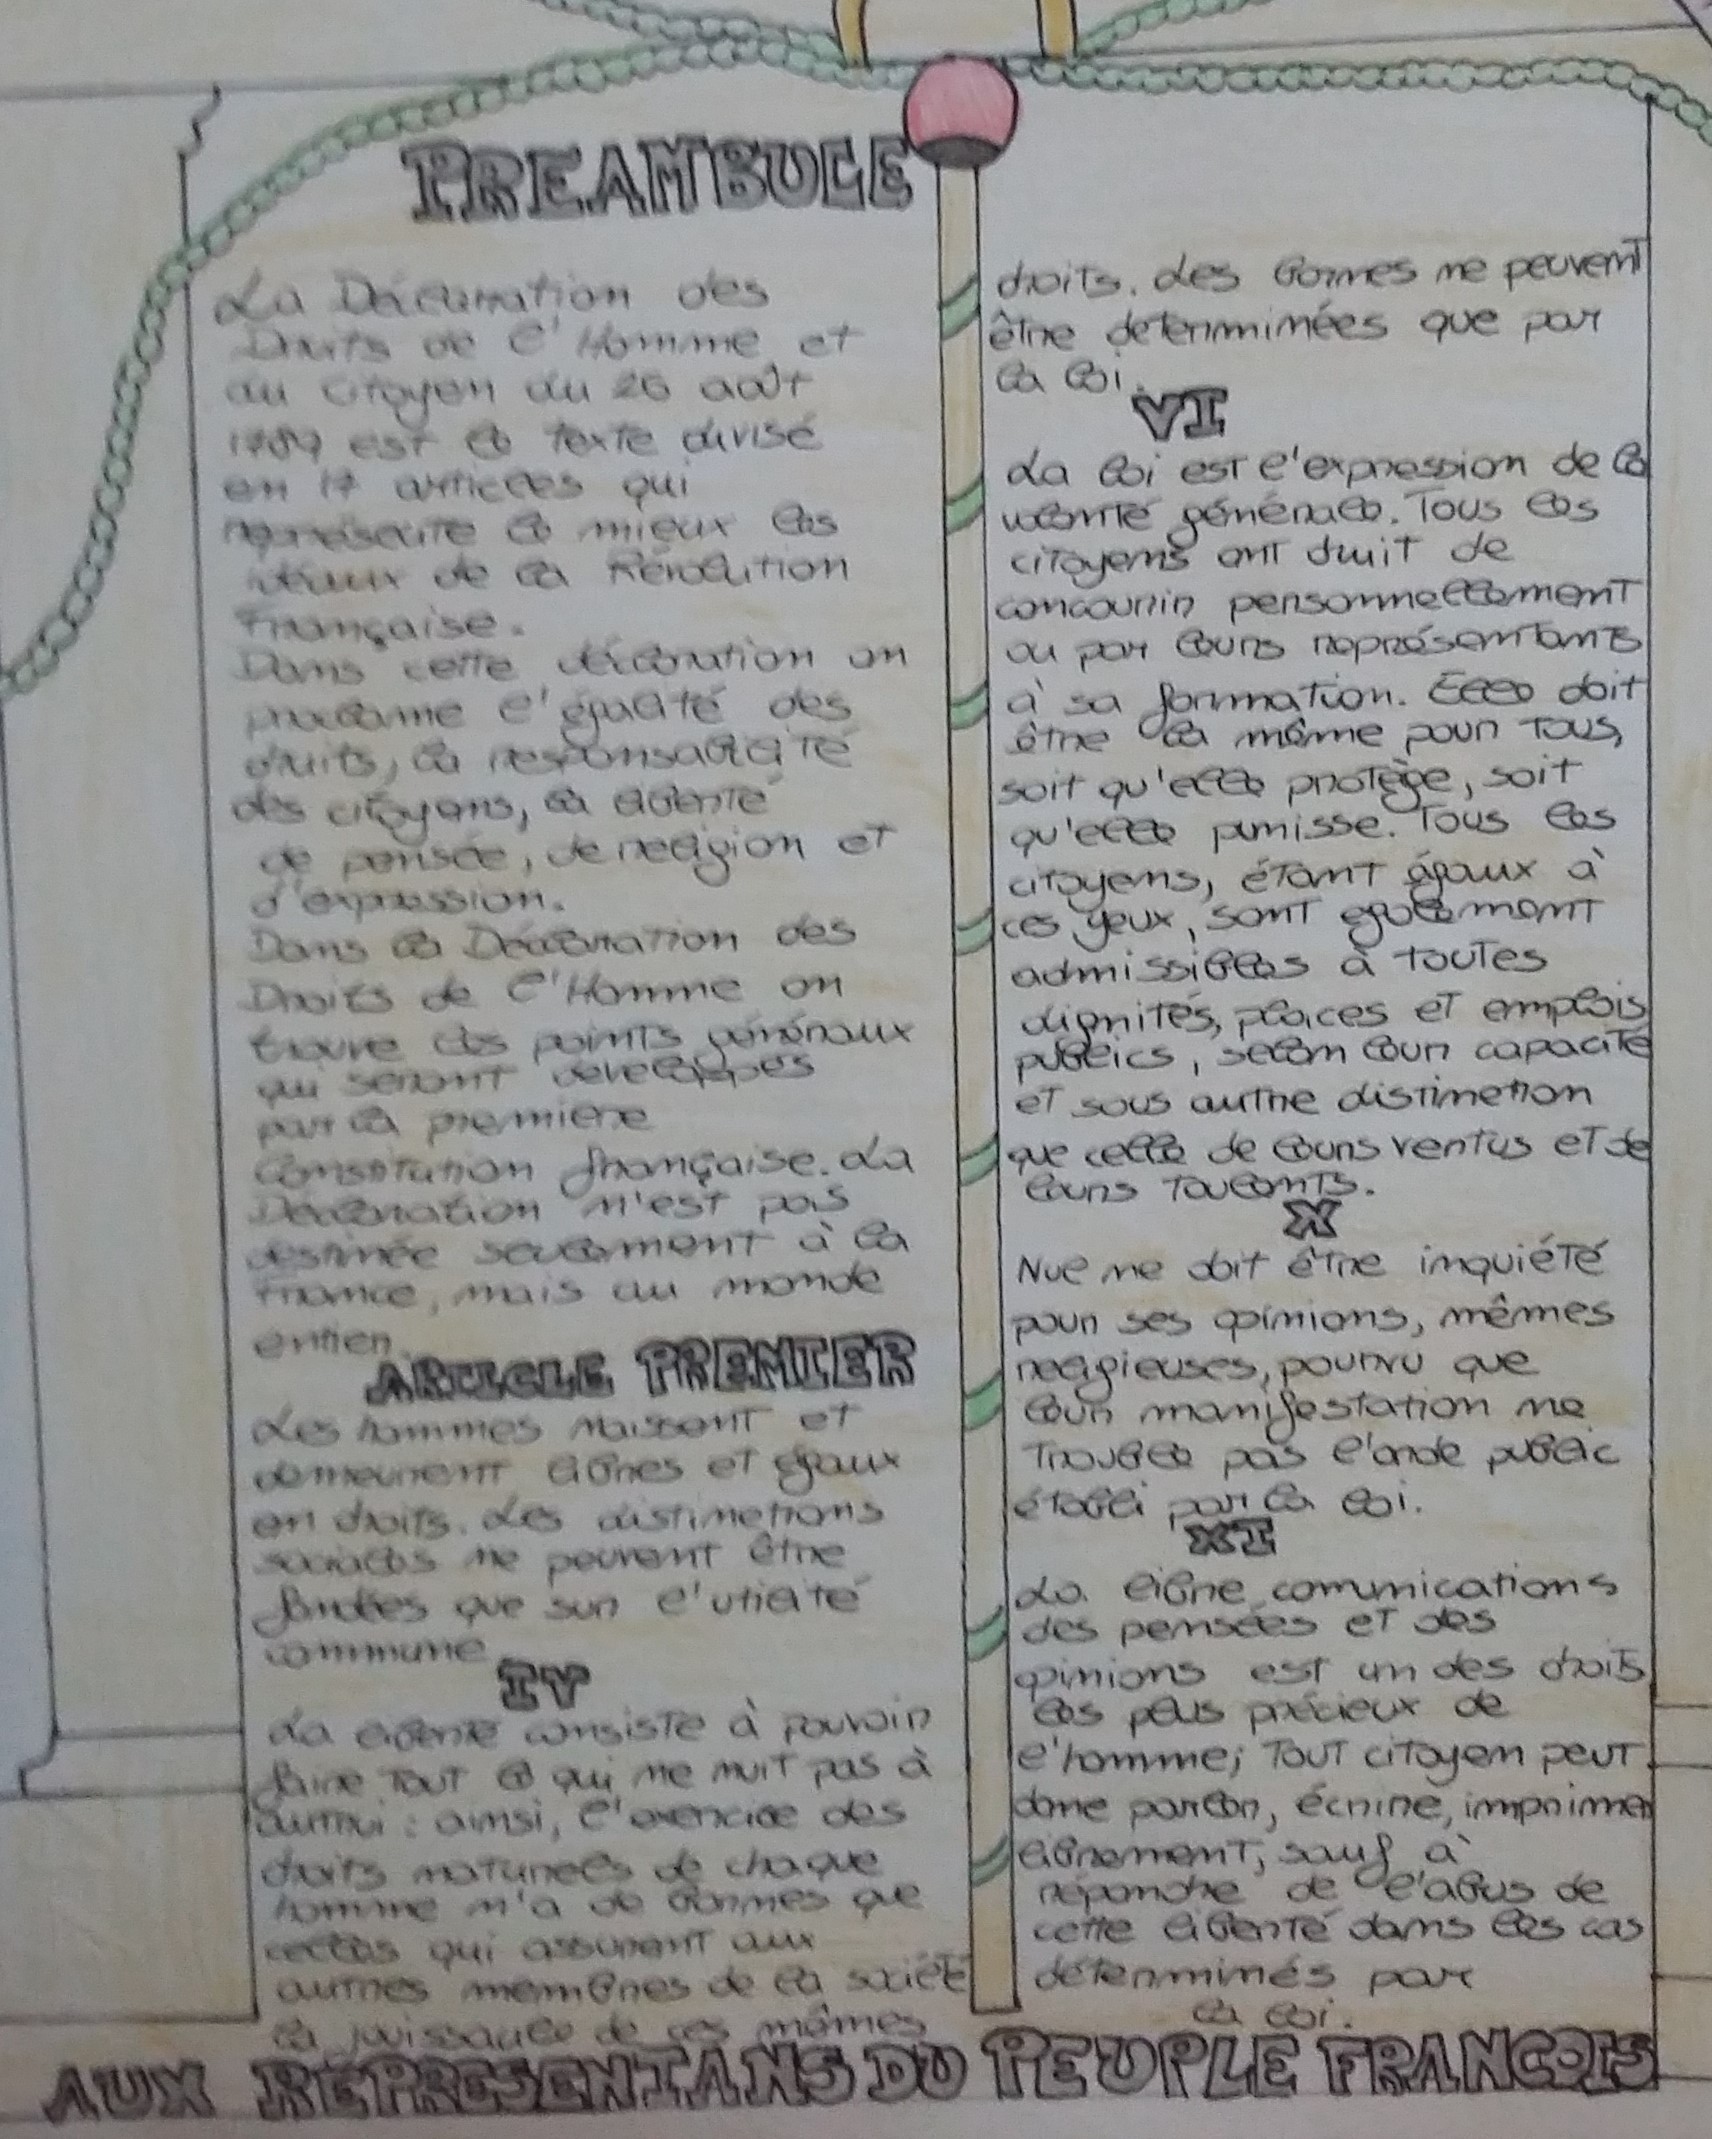 PREAMBULE
La Déclaration des
Droits de l'Homme et
du Citoyen du 26 août
1789 est le texte divisé
en 17 articles qui
représente le mieux les
idéaux de la Révolution
Française.
Dans cette déclaration on
proclame l'égalité des
druits, la responsabilité
des citoyens, la liberté
de pensée, de religion et
d'expression.
Dans la Déclaration des
Droits de l'Homme on
trouve les points généraux
qui seront developpes
par la premiere
Constitution française. La
Declaration n'est pas
destinée seulement à la
France, mais au monde
entier.
ARTICLE PREMIER
Les hommes naissent et
demeurent libres et égaux
en droits. Les distinctions
sociales ne peuvent être
fondées que sur l'utilité
commune
IV
La liberté consiste à pouvoir
faire tout ce qui ne nuit pas à
autrui : ainsi, l'exercice des
droits naturels de chaque
homme n'a de bornes que
celles qui assurent aux
autres membres de la société
la jouissance de ces mêmes
droits. Les bornes ne peuvent
être determinées que par
la loi.
VI
La loi est l'expression de la
volonté générale. Tous les
citoyens ont druit de
concourrir personnellement
ou par leurs représentants
à sa formation. Elle doit
être la même pour tous,
soit qu'elle protège, soit
qu'elle punisse. Tous les
citoyens, étant égaux à
ces yeux, sont egalement
admissibles à toutes
dignités, places et emplois
publics, selon leur capacité
et sous autre distinction
que celle de leurs ventus et de
leurs talents.
X
Nul ne doit être inquiété
pour ses opinions, mêmes
religieuses, pourvu que
leur manifestation ne
trouble pas l'orde public
établi par la loi.
XI
La libre comunications
des pensées et des
opinions est un des droits
les plus précieux de
l'homme; tout citoyen peut
donc parler, écrire, imprimer
librement, sauf à
répondre de l'abus de
cette liberté dans les cas
déterminés par
la loi.
AUX REPRESENTANS DU PEUPLE FRANCOIS